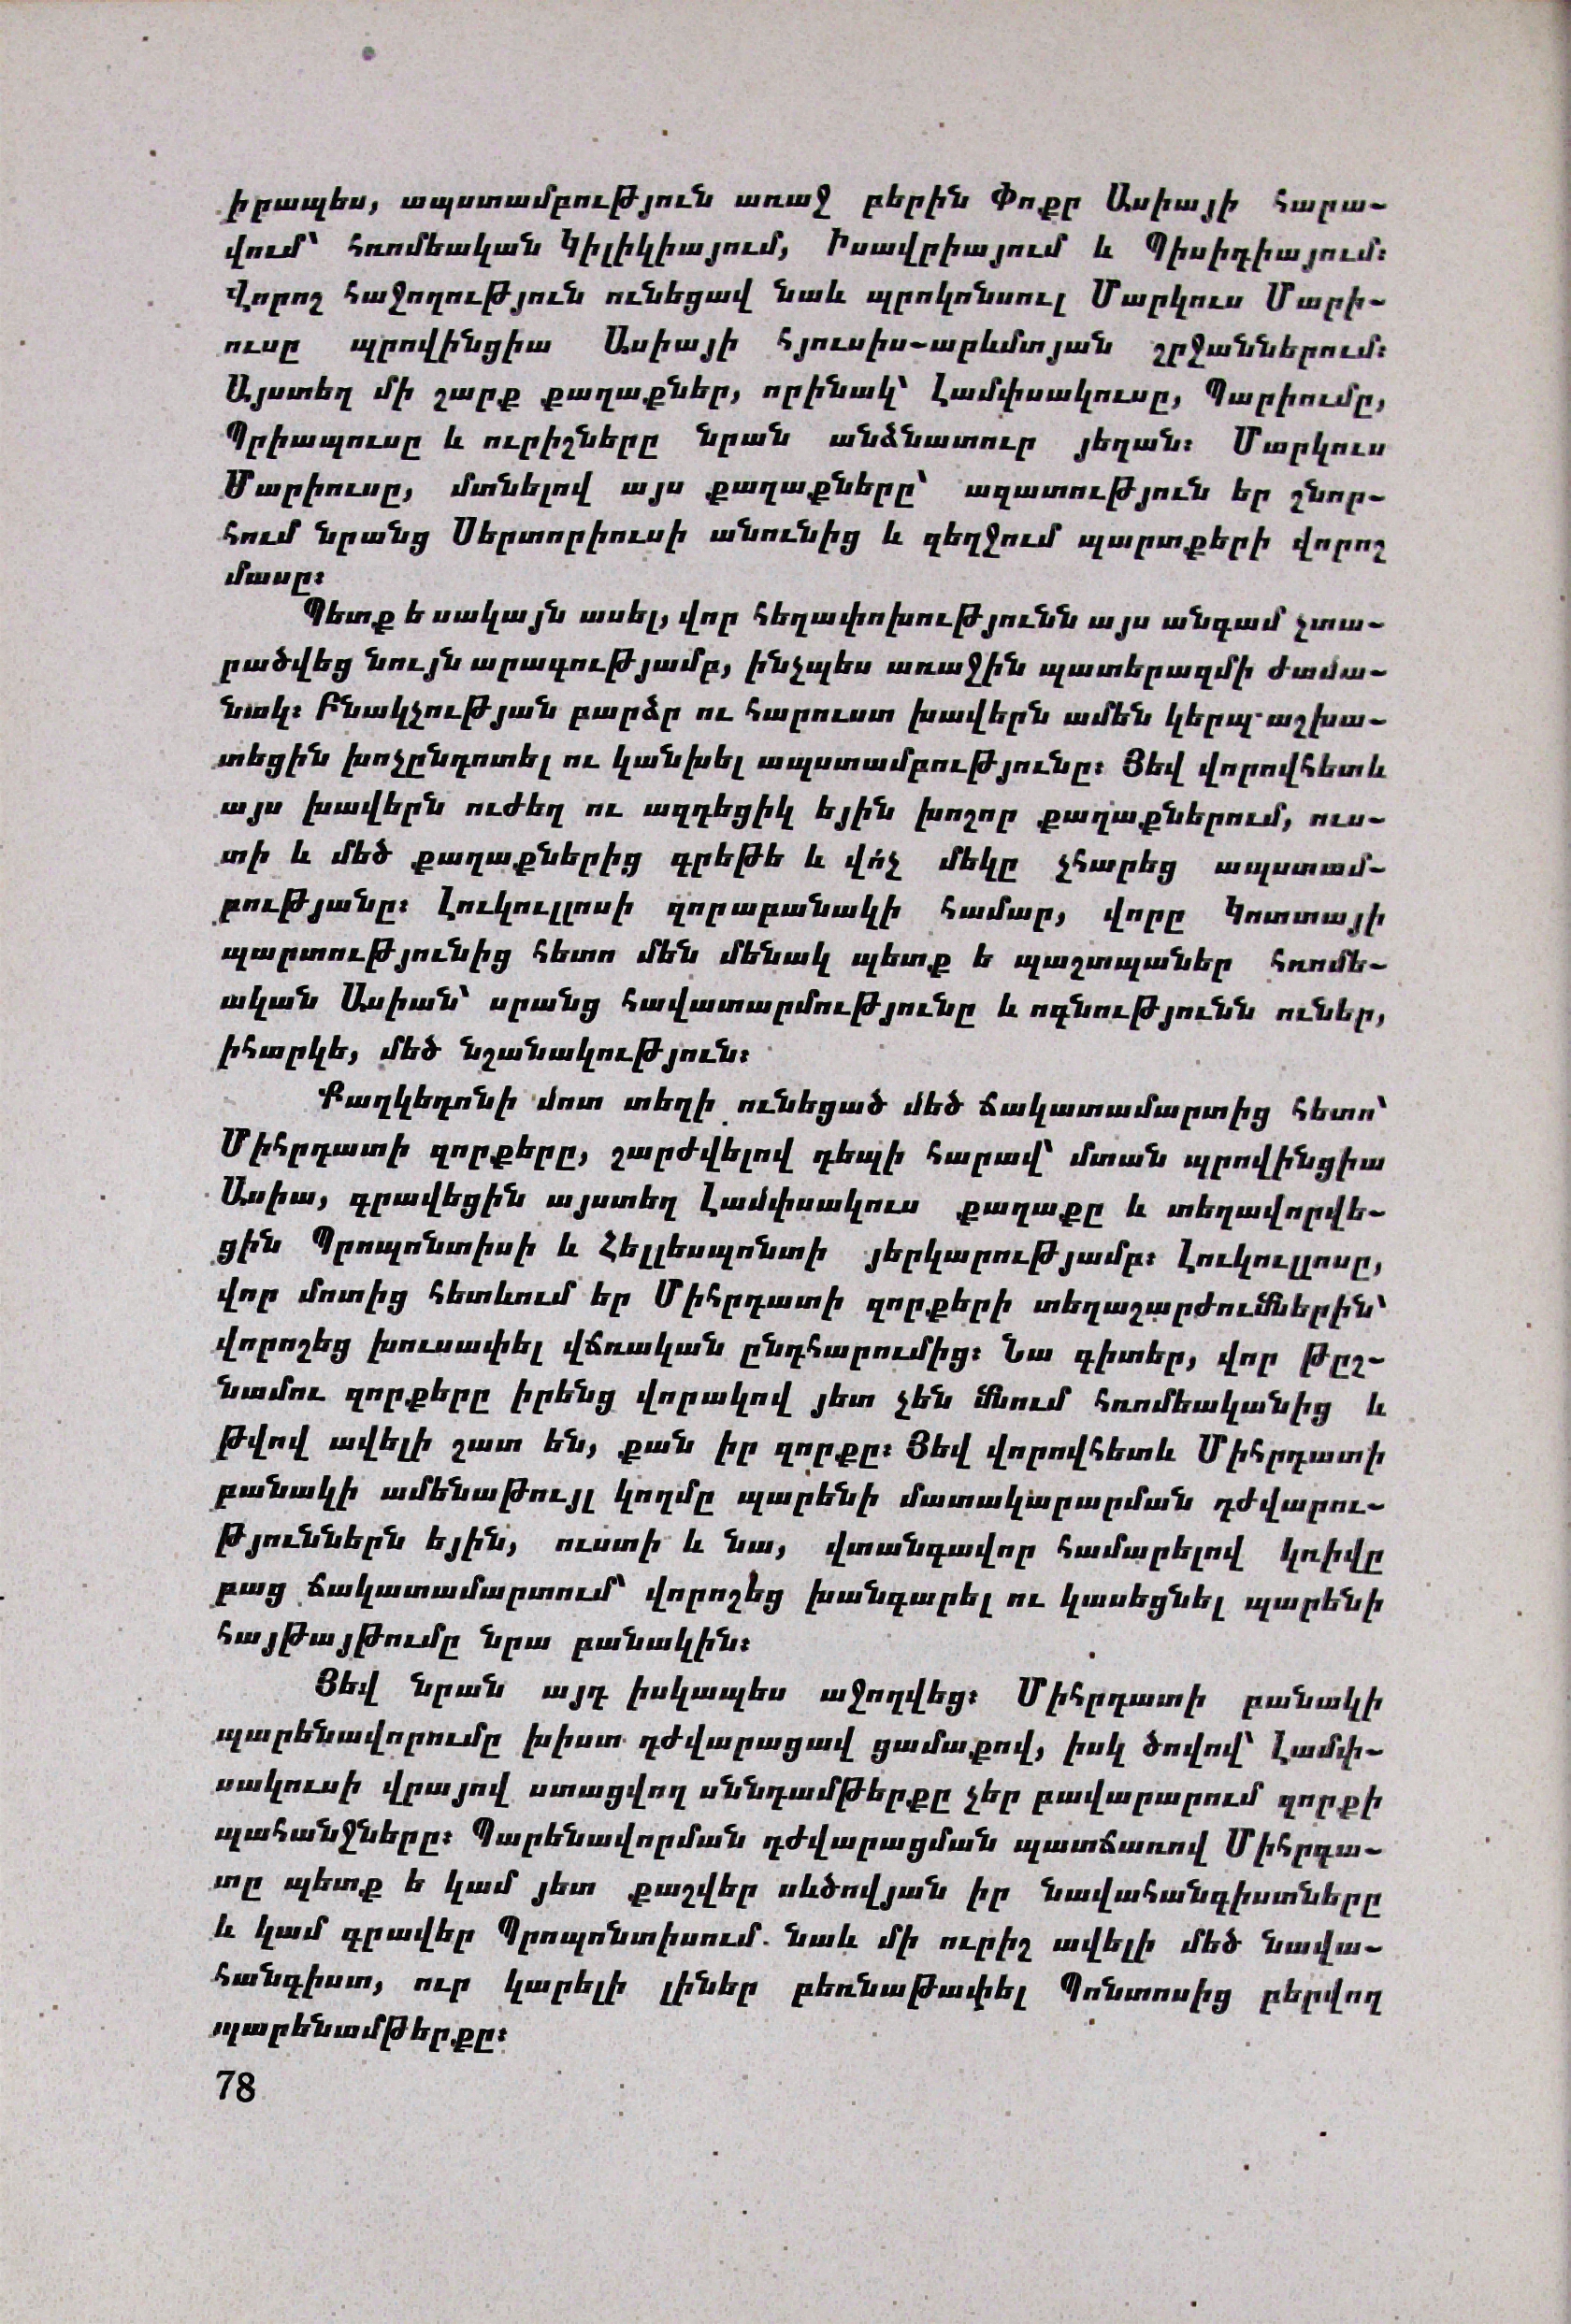 իրապես, ապստամբություն առաջ բերին Փոքր Ասիայի հարա-
վում՝ հռոմեական Կիլիկիայում, Իսավրիայում և Պիսիդիայում։
Վորոշ հաջողություն ունեցավ նաև պրոկոնսուլ Մարկուս Մարի-
ուսը պրովինցիա Ասիայի հյուսիս-արևմտյան շրջաններում։
Այստեղ մի շարք քաղաքներ, որինակ՝ Լամփսակուսը, Պարիումը,
Պրիապուսը և ուրիշները նրան անձնատուր յեղան։ Մարկուս
Մարիուսը, մտնելով այս քաղաքները՝ ազատություն եր շնոր-
հում նրանց Սերտորիուսի անունից և զեղջում պարտքերի վորոշ
մասը։
Պետք ե սակայն ասել, վոր հեղափոխությունն այս անգամ չտա-
րածվեց նույն արագությամբ, ինչպես առաջին պատերազմի ժամա-
նակ։ Բնակչության բարձր ու հարուստ խավերն ամեն կերպ աշխա-
տեցին խոչընդոտել ու կանխել ապստամբությունը։ Յեվ վորովհետև
այս խավերն ուժեղ ու ազդեցիկ եյին խոշոր քաղաքներում, ուս-
տի և մեծ քաղաքներից գրեթե և վո՛չ մեկը չհարեց ապստամ-
բությանը։ Լուկուլլոսի զորաբանակի համար, վորը Կոտտայի
պարտությունից հետո մեն մենակ պետք ե պաշտպաներ հռոմե-
ական Ասիան՝ սրանց հավատարմությունը և ոգնությունն ուներ,
իհարկե, մեծ նշանակություն։
Քաղկեդոնի մոտ տեղի ունեցած մեծ ճակատամարտից հետո՝
Միհրդատի զորքերը, շարժվելով դեպի հարավ՝ մտան պրովինցիա
Ասիա, գրավեցին այստեղ Լամփսակուս քաղաքը և տեղավորվե-
ցին Պրոպոնտիսի և Հելլեսպոնտի յերկարությամբ։ Լուկուլլոսը,
վոր մոտից հետևում եր Միհրդատի զորքերի տեղաշարժումներին՝
վորոշեց խուսափել վճռական ընդհարումից։ Նա գիտեր, վոր թըշ-
նամու զորքերը իրենց վորակով յետ չեն մնում հռոմեականից և
թվով ավելի շատ են, քան իր զորքը։ Յեվ վորովհետև Միհրդատի
բանակի ամենաթույլ կողմը պարենի մատակարարման դժվարու-
թյուններն եյին, ուստի և նա, վտանգավոր համարելով կռիվը
բաց ճակատամարտում՝ վորոշեց խանգարել ու կասեցնել պարենի
հայթայթումը նրա բանակին։
Յեվ նրան այդ իսկապես աջողվեց։ Միհրդատի բանակի
պարենավորումը խիստ դժվարացավ ցամաքով, իսկ ծովով՝ Լամփ-
սակուսի վրայով ստացվող սննդամթերքը չեր բավարարում զորքի
պահանջները։ Պարենավորման դժվարացման պատճառով Միհրդա-
տը պետք ե կամ յետ քաշվեր սևծովյան իր նավահանգիստները
և կամ գրավեր Պրոպոնտիսում նաև մի ուրիշ ավելի մեծ նավա-
հանգիստ, ուր կարելի լիներ բեռնաթափել Պոնտոսից բերվող
պարենամթերքը։
78